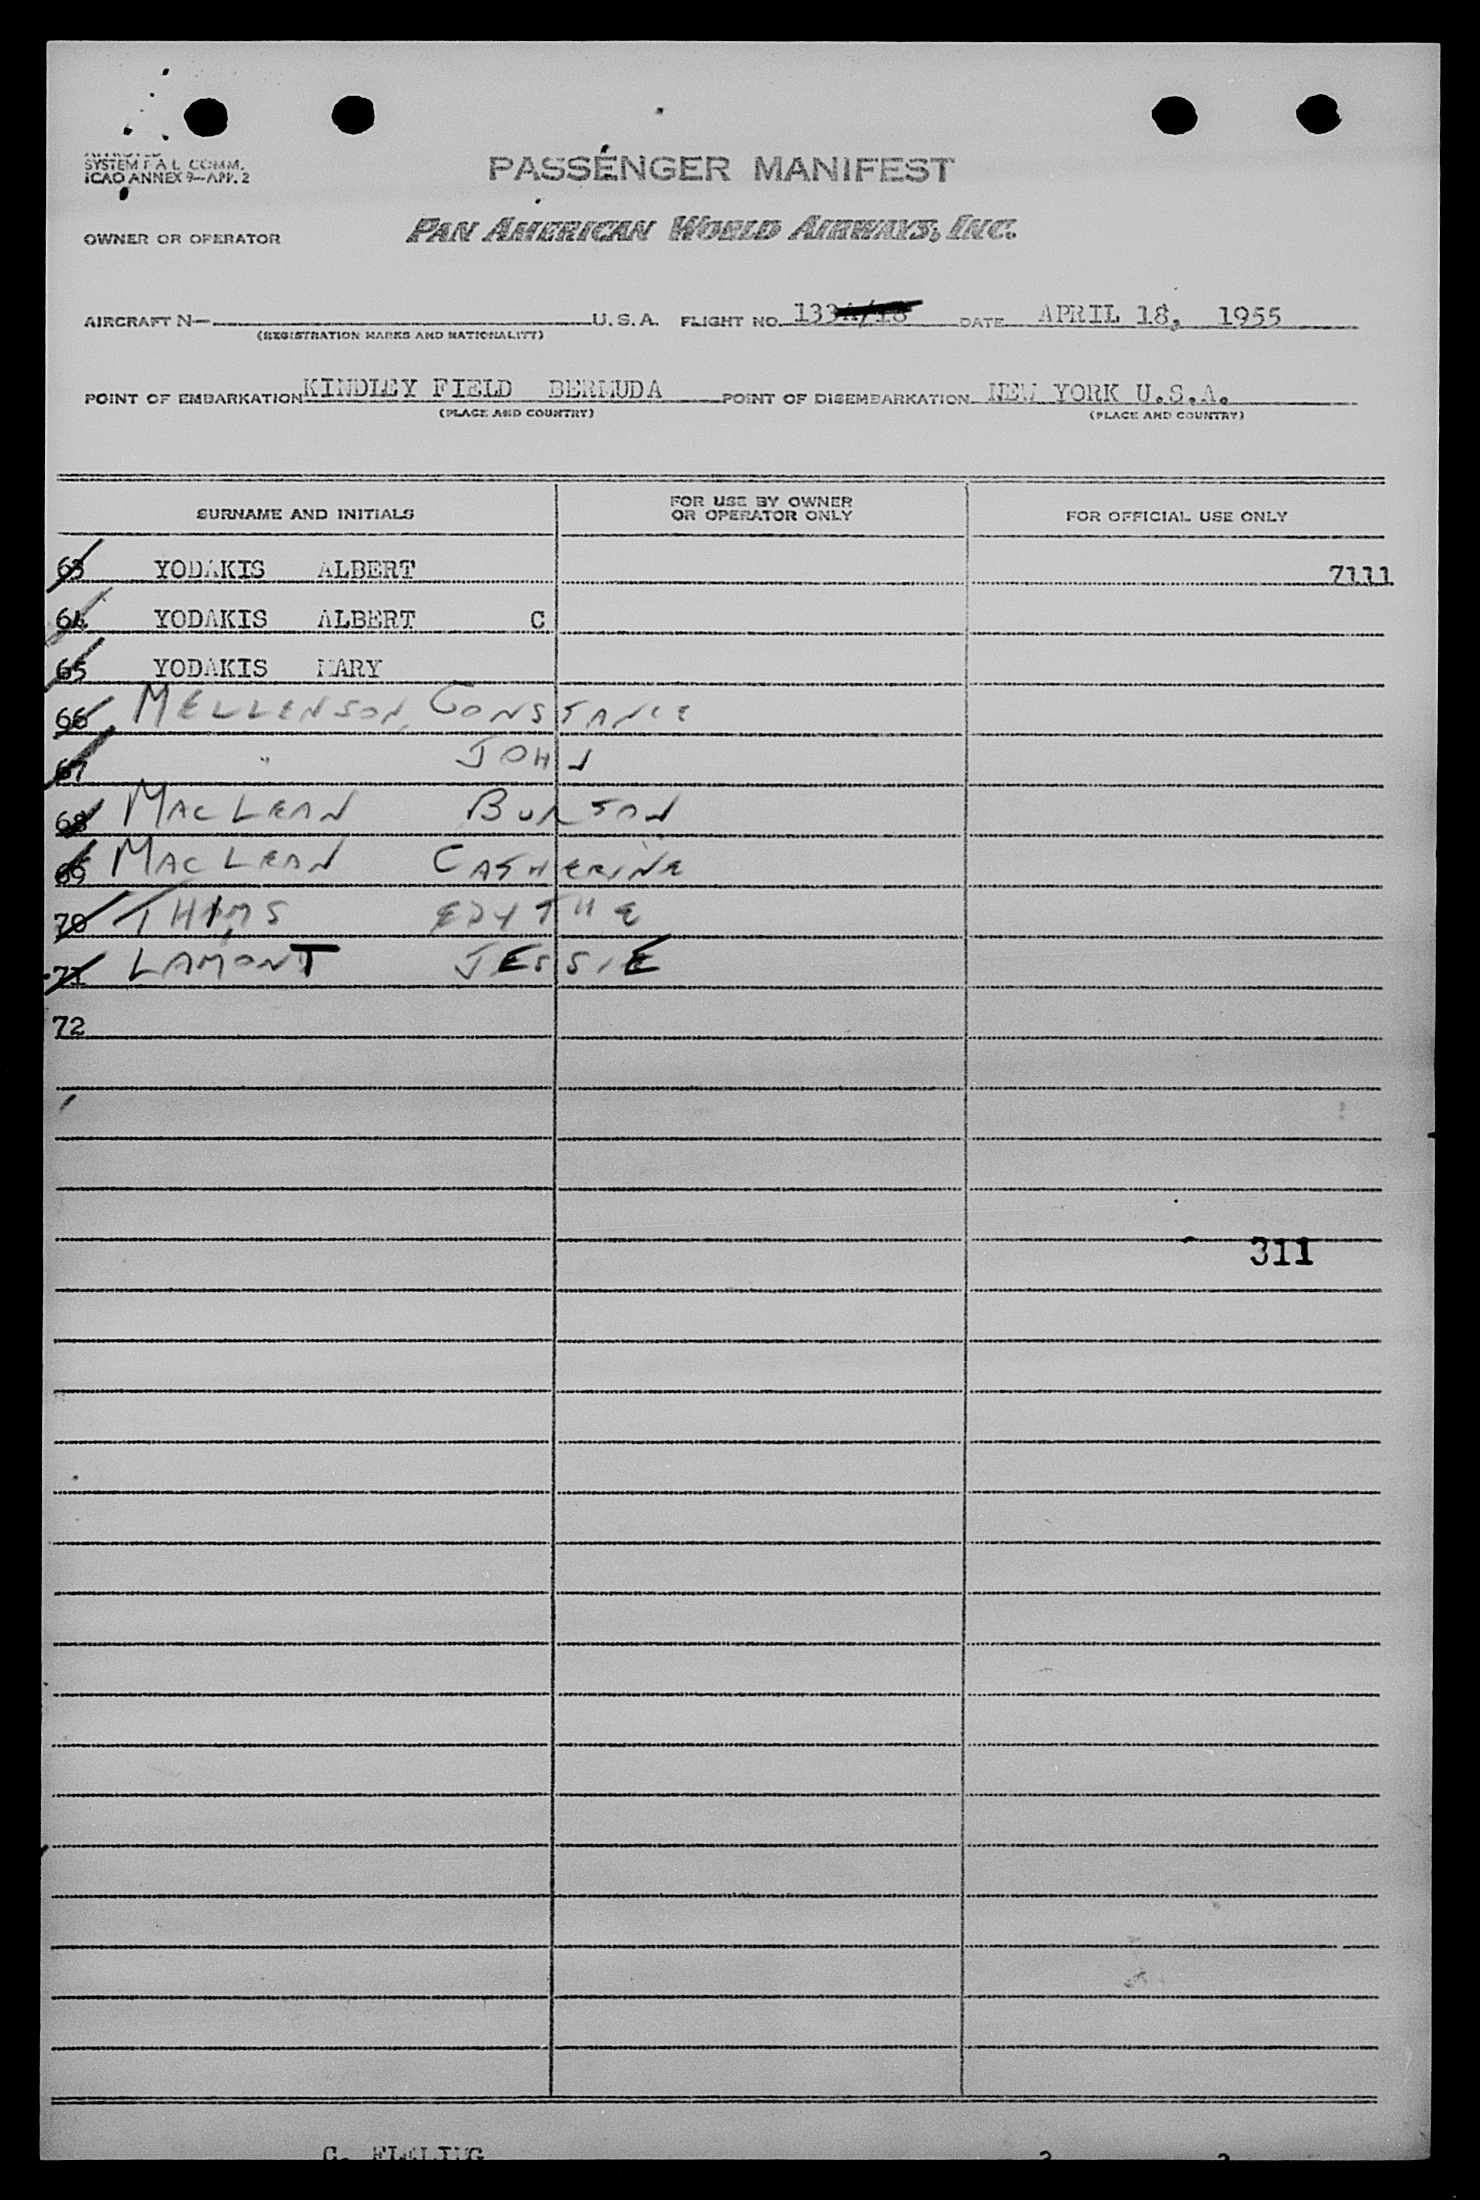 SYSTEM F. A. L. COMM.
ICAO ANNEX 9—APP. 2
PASSENGER MANIFEST
OWNER OR OPERATOR PAN AMERICAN WORLD AIRWAYS, INC.
AIRCRAFT N— U. S. A. FLIGHT NO. 133A/18 DATE APRIL 18, 1955
(REGISTRATION MARKS AND NATIONALITY)
POINT OF EMBARKATION KINDLEY FIELD BERMUDA POINT OF DISEMBARKATION NEW YORK U.S.A.
(PLACE AND COUNTRY) (PLACE AND COUNTRY)
SURNAME AND INITIALS FOR USE BY OWNER OR OPERATOR ONLY FOR OFFICIAL USE ONLY
63 YODAKIS ALBERT 7111
64 YODAKIS ALBERT C
65 YODAKIS MARY
66 MELLENSON, CONSTANCE
67 " JOHN
68 MACLEAN BURTON
69 MACLEAN CATHERINE
70 THIMS EDYTHE
71 LAMONT JESSIE
72
311